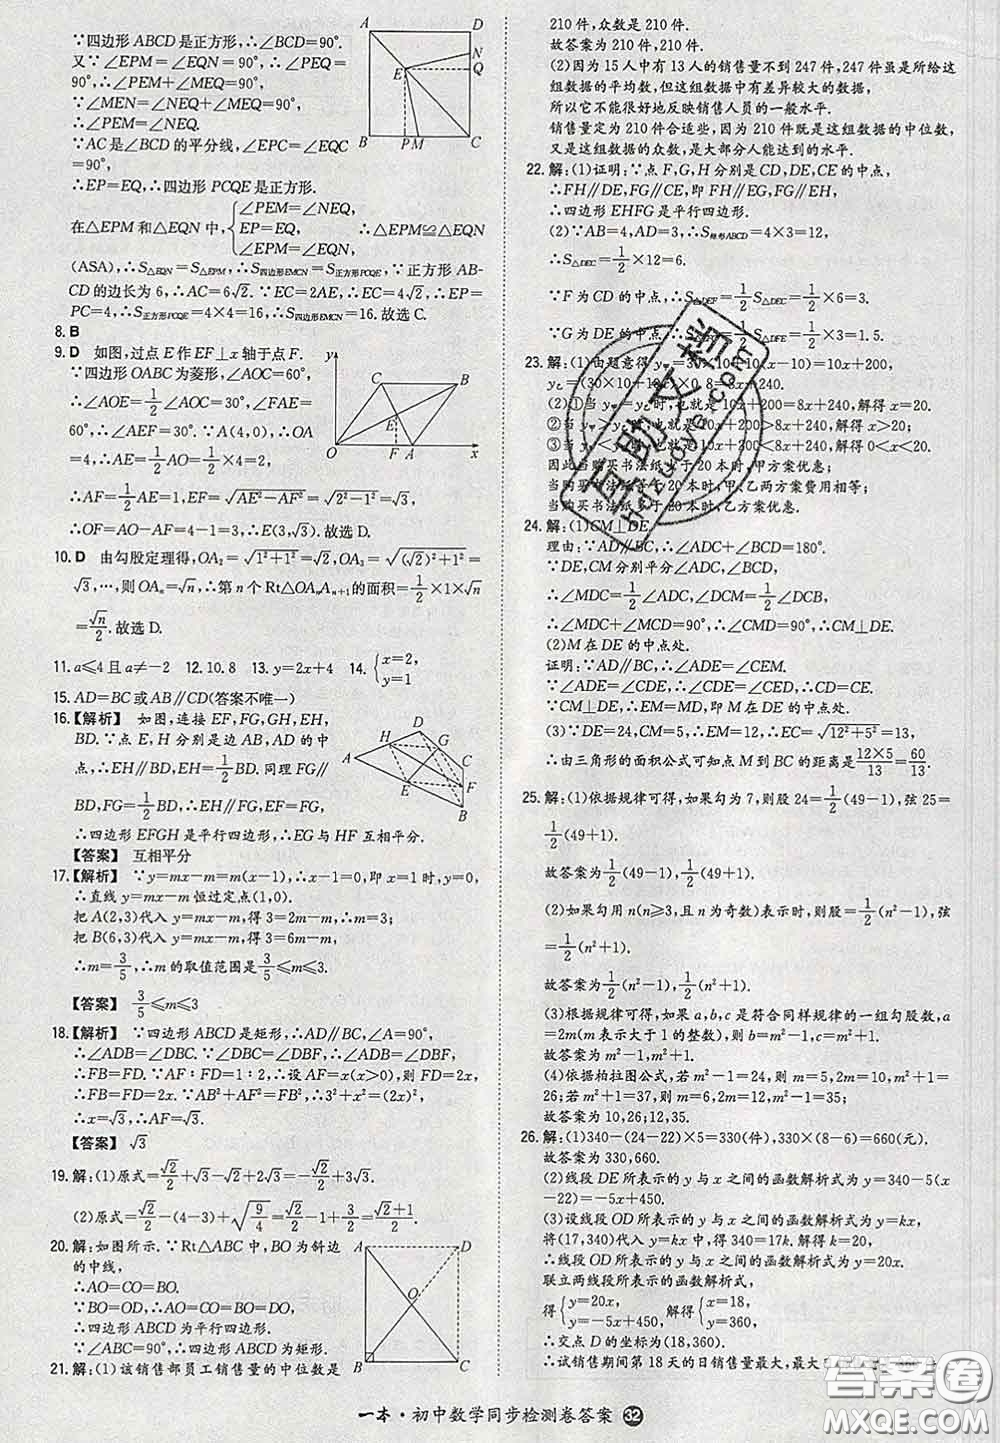 ∵四边形 ABCD 是正方形,∴∠BCD=90°.
又∵∠EPM=∠EQN=90°,∴∠PEQ=
90°,∴∠PEM+∠MEQ=90°.
∵∠MEN=∠NEQ+∠MEQ=90°,
∴∠PEM=∠NEQ.
∵AC是∠BCD的平分线,∠EPC=∠EQC
=90°,
∴EP=EQ,∴四边形 PCQE 是正方形.
在△EPM和△EQN中,{∠PEM=∠NEQ, EP=EQ, ∠EPM=∠EQN, ∴△EPM≌△EQN
(ASA),∴S△EQN=S△EPM,∴S四边形EMCN=S正方形PCQE.∵正方形 AB-
CD的边长为6,∴AC=6√2.∵EC=2AE,∴EC=4√2,∴EP=
PC=4,∴S正方形PCQE=4×4=16,∴S四边形EMCN=16.故选C.
8. B
9. D 如图,过点E作EF⊥x轴于点F.
∵四边形OABC为菱形,∠AOC=60°,
∴∠AOE=1/2∠AOC=30°,∠FAE=
60°.∵A(4,0),∴OA
=4,∴AE=1/2AO=1/2×4=2,
∴AF=1/2AE=1,∴EF=√(AE²-AF²)=√(2²-1²)=√3,
∴OF=AO-AF=4-1=3,∴E(3,√3).故选D.
10. D 由勾股定理得,OA₂=√(1²+1²)=√2,OA₃=√((√2)²+1²)=
√3,…,则OAₙ=√n,∴第n个Rt△OAₙAₙ₊₁的面积=1/2×1×√n
=√n/2.故选D.
11. a≤4且a≠-2 12. 10.8 13. y=2x+4 14. {x=2, y=1
15. AD=BC或AB∥CD(答案不唯一)
16.【解析】 如图,连接EF,FG,GH,EH,
BD.∵点E,H分别是AB,AD的中
点,∴EH∥BD,EH=1/2BD.同理FG∥
BD,FG=1/2BD,∴EH∥FG,EH=FG,
∴四边形EFGH是平行四边形,∴EG与HF互相平分.
【答案】 互相平分
17.【解析】 ∵y=mx-m=m(x-1),∴x-1=0,即x=1时,y=0,
∴直线y=mx-m恒过定点(1,0).
把A(2,3)代入y=mx-m,得3=2m-m,∴m=3;
把B(6,3)代入y=mx-m,得3=6m-m,
∴m=3/5,∴m的取值范围是3/5≤m≤3.
【答案】 3/5≤m≤3
18.【解析】 ∵四边形ABCD是矩形,∴AD∥BC,∠A=90°,
∴∠ADB=∠DBC.∵∠DBC=∠DBF,∴∠ADB=∠DBF,
∴FB=FD.∵AF:FD=1:2,∴设AF=x(x>0),则FD=2x,
∴FB=FD=2x.∵AB²+AF²=FB²,∴3²+x²=(2x)².∵x>0,
∴x=√3,∴AF=√3.
【答案】 √3
19. 解:(1)原式=√2/2+√3-√2+2√3=-√2/2+3√3.
(2)原式=√2/2-(4-3)+√(9/4)=√2/2-1+3/2=(√2+1)/2.
20. 解:如图所示.∵Rt△ABC中,BO为斜边
的中线,
∴AO=CO=BO.
∵BO=OD,∴AO=CO=BO=DO,
∴四边形ABCD为平行四边形.
∵∠ABC=90°,∴四边形ABCD为矩形.
21. 解:(1)该销售部员工销售量的中位数是
210件,众数是210件.
故答案为210件,210件.
(2)因为15人中有13人的销售量不到247件,247件虽是所给这
组数据的平均数,但这组数据中有差异较大的数据,
所以它不能很好地反映销售人员的一般水平.
销售量定为210件合适些,因为210件既是这组数据的中位数,
又是这组数据的众数,是大部分人能达到的水平.
22. 解:(1)证明:∵点F,G,H分别是CD,DE,CE的中点,
∴FH∥DE,FG∥CE,即FH∥EG,FG∥EH,
∴四边形EHFG是平行四边形.
(2)∵AB=4,AD=3,∴S矩形ABCD=4×3=12,
∴S△DEC=1/2×12=6.
∵F为CD的中点,∴S△DEF=1/2S△DEC=1/2×6=3.
∵G为DE的中点,∴S△EFG=1/2S△DEF=1/2×3=1.5.
23. 解:(1)由题意得y甲=30×10+10(x-10)=10x+200;
y乙=(30×10+10x)×0.8=8x+240.
(2)①当y甲=y乙时,也就是10x+200=8x+240,解得x=20.
②当y甲>y乙时,也就是10x+200>8x+240,解得x>20;
③当y甲<y乙时,也就是10x+200<8x+240,解得0<x<20.
因此当购买书法纸少于20本时,甲方案优惠;
当购买书法纸等于20本时,甲、乙两方案费用相等;
当购买书法纸多于20本时,乙方案优惠.
24. 解:(1)CM⊥DE.
理由:∵AD∥BC,∴∠ADC+∠BCD=180°.
∵DE,CM分别平分∠ADC,∠BCD,
∴∠MDC=1/2∠ADC,∠MCD=1/2∠DCB,
∴∠MDC+∠MCD=90°,∴∠CMD=90°,∴CM⊥DE.
(2)M在DE的中点处.
证明:∵AD∥BC,∴∠ADE=∠CEM.
∵∠ADE=∠CDE,∴∠CDE=∠CED,∴CD=CE.
∵CM⊥DE,∴EM=MD,即M在DE的中点处.
(3)∵DE=24,CM=5,∴EM=12,∴EC=√(12²+5²)=13,
∴由三角形的面积公式可知点M到BC的距离是(12×5)/13=60/13.
25. 解:(1)依据规律可得,如果勾为7,则股24=1/2(49-1),弦25=
1/2(49+1).
故答案为1/2(49-1),1/2(49+1).
(2)如果勾用n(n≥3,且n为奇数)表示时,则股=1/2(n²-1),弦
=1/2(n²+1).
故答案为1/2(n²-1),1/2(n²+1).
(3)根据规律可得,如果a,b,c是符合同样规律的一组勾股数,
a=2m(m表示大于1的整数),则b=m²-1,c=m²+1.
故答案为m²-1,m²+1.
(4)依据柏拉图公式,若m²-1=24,则m=5,2m=10,m²+1=
26;若m²+1=37,则m=6,2m=12,m²-1=35.
故答案为10,26;12,35.
26. 解:(1)340-(24-22)×5=330(件),330×(8-6)=660(元).
故答案为330,660.
(2)线段DE所表示的y与x之间的函数解析式为y=340-5(x
-22)=-5x+450.
(3)设线段OD所表示的y与x之间的函数解析式为y=kx,
将(17,340)代入y=kx中,得340=17k.解得k=20,
∴线段OD所表示的y与x之间的函数解析式为y=20x.
联立两线段所表示的函数解析式,
得{y=20x, y=-5x+450, 解得{x=18, y=360,
∴交点D的坐标为(18,360).
∴试销售期间第18天的日销售量最大,最大
一本·初中数学同步检测卷答案 32
百助文档
Hazuoye.com
答案圈
MXQE.COM